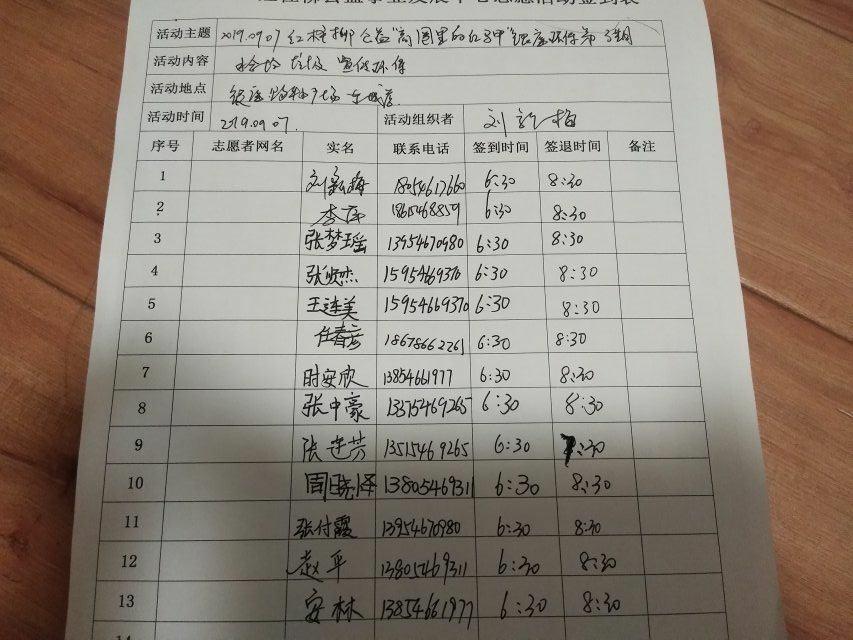 活动签到表
活动主题 2019.09.07 红柽柳公益
活动内容 捡垃圾 宣传环保
活动地点 银座
活动时间 2019.09.07. 活动组织者 刘新梅
序号 志愿者网名 实名 联系电话 签到时间 签退时间 备注
1 刘新梅 18054617660 6:30 8:30
2 李萍 18615468859 6:30 8:30
3 张梦瑶 13954670980 6:30 8:30
4 张俊杰 15954669370 6:30 8:30
5 王连美 15954669370 6:30 8:30
6 任春彦 18678662261 6:30 8:30
7 时安欣 13854661977 6:30 8:30
8 张中豪 13515469265 6:30 8:30
9 张连芳 13515469265 6:30 :30
10 周晓泽 13805469311 6:30 8:30
11 张付霞 13954670980 6:30 8:30
12 赵平 13805469311 6:30 8:30
13 安林 13854661977 6:30 8:30